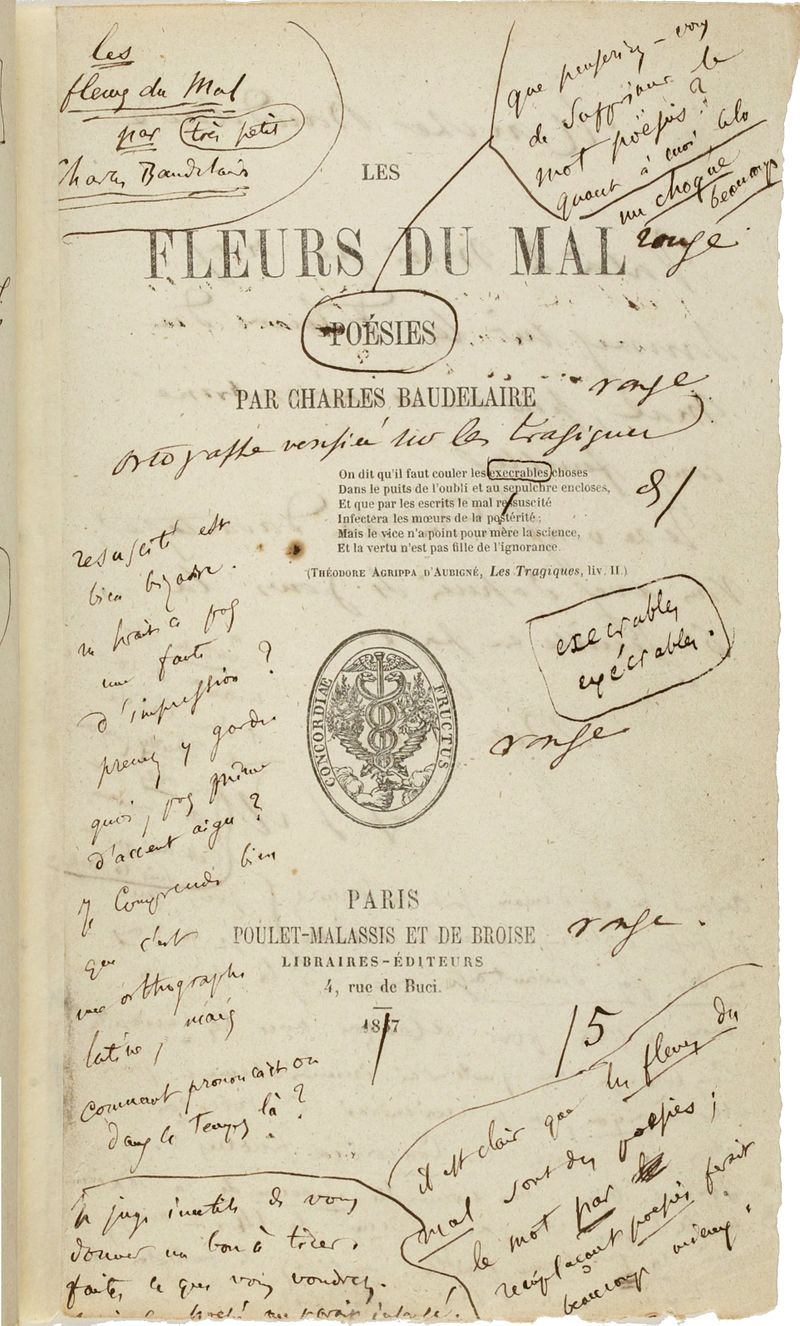 les
fleurs du Mal
par très petit
Charles Baudelaire
que penseriez-vous
de supprimer le
mot poësies ?
quant à moi, cela
me choque
beaucoup
LES
FLEURS DU MAL
rouge.
POÉSIES
PAR CHARLES BAUDELAIRE
rouge
ortografhe verifiée sur les tragiques
On dit qu'il faut couler les execrables choses
Dans le puits de l'oubli et au sepulchre encloses,
Et que par les escrits le mal ressuscité
Infectera les mœurs de la postérité ;
Mais le vice n'a point pour mère la science,
Et la vertu n'est pas fille de l'ignorance.
(THÉODORE AGRIPPA D'AUBIGNÉ, Les Tragiques, liv. II.)
resuscité est
bien bizarre.
ne serait-ce pas
une faute
d'impression ?
prenez y garde
quoi, pas même
d'accent aigu ?
Je comprends bien
que c'est
une orthographe
latine, mais
comment prononçait-on
dans ce temps là ?
execrables
exécrables.
rouge
CONCORDIAE FRUCTUS
PARIS
POULET-MALASSIS ET DE BROISE
rouge.
LIBRAIRES-ÉDITEURS
4, rue de Buci.
1857
/5
il est clair que les fleurs du
mal sont des poësies ;
le mot par
remplaçant poësies ferait
beaucoup mieux.
Je juge inutile de vous
donner un bon à tirer.
faites ce que vous voudrez.